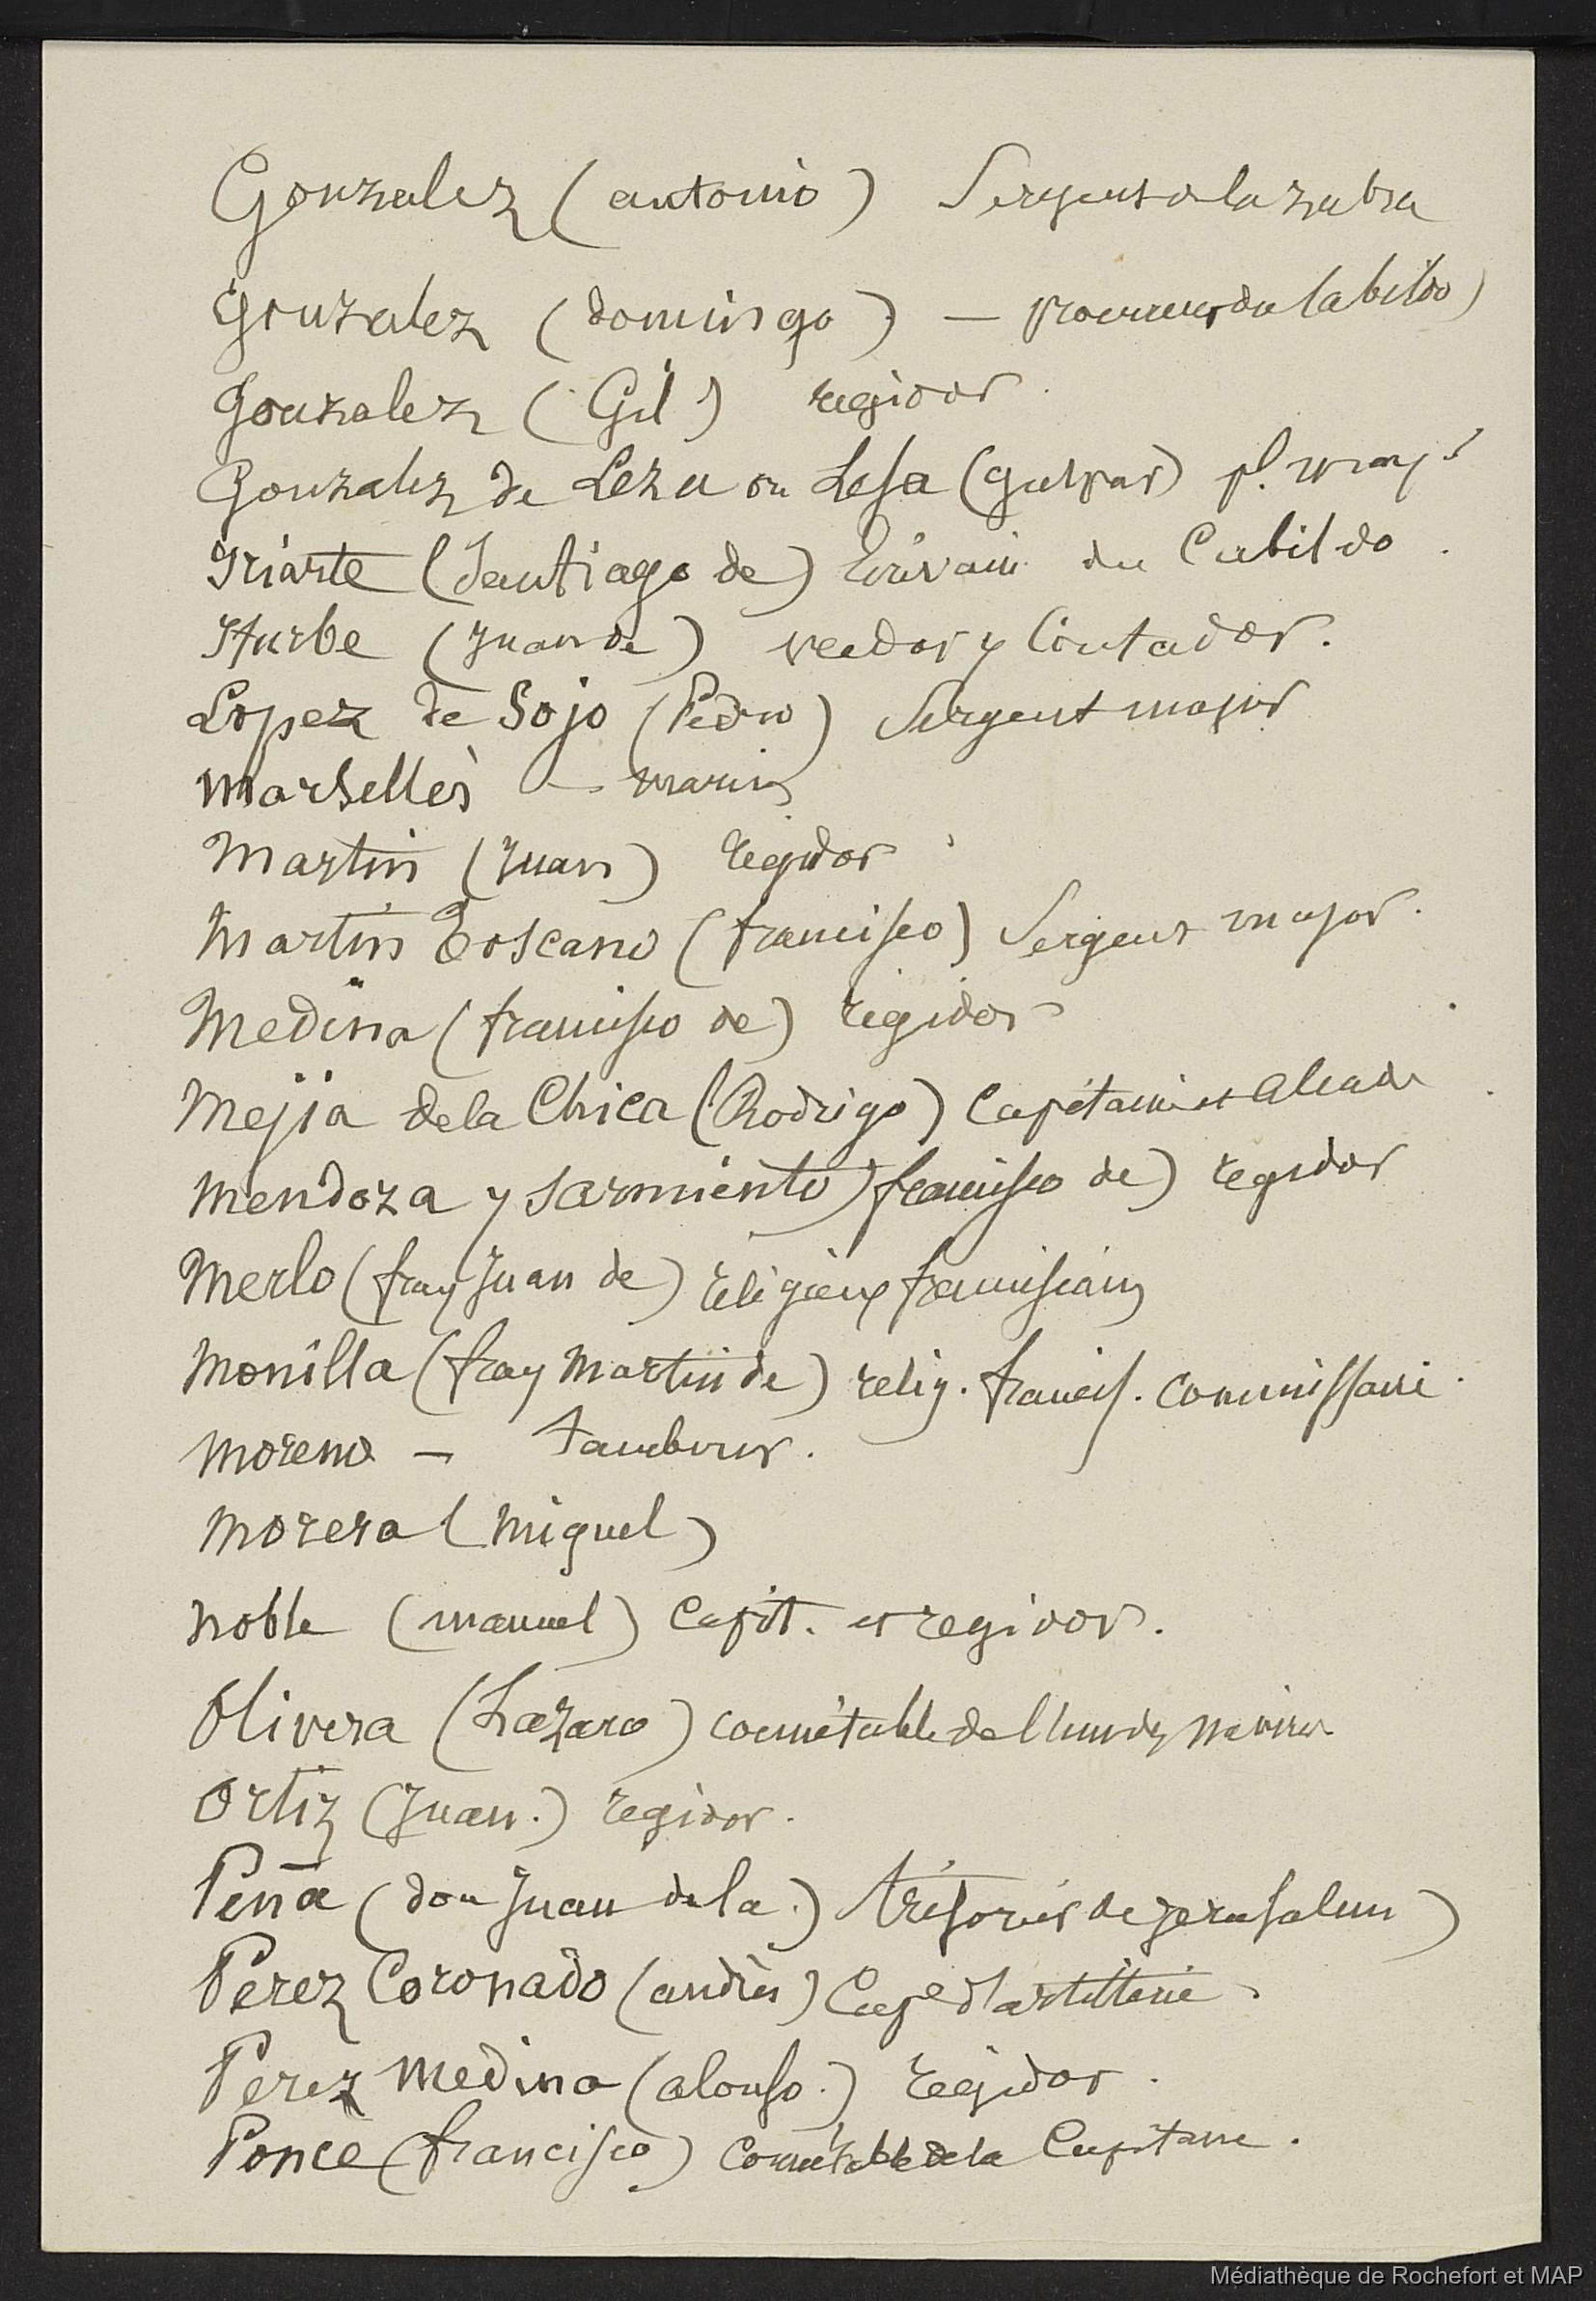 Gonzalez (antonio) Sergent de la zabra
Gonzalez (domingo) — procureur du Cabildo)
Gonzalez (Gil) regidor
Gonzalez de Leza ou Lesa (Gaspar) pl. mayr
Iriarte (Santiago de) Ecrivain du Cabildo.
Iturbe (Juan de) veedor y Contador.
Lopez de Sojo (Pedro) Sergent major
Marsellès — marin
Martin (Juan) regidor
Martin Toscano (francisco) Sergent major.
Medina (francisco de) regidor
Mejia de la Chica (Rodrigo) Capitaine et alcade
Mendoza y Sarmiento (francisco de) regidor
Merlo (fray Juan de) religieux franciscain
Monilla (fray Martin de) relig. francis. commissaire.
Moreno — tambour.
Morera (Miguel)
Noble (manuel) Capit. et regidor.
Olivera (Lazaro) connétable de l'un des navires
Ortiz (Juan.) regidor.
Peña (don Juan de la.) trésorier de Jerusalem)
Perez Coronado (andrès) Cape d'artillerie.
Perez Medina (alonso.) regidor.
Ponce (francisco) Connétable de la Capitane.
Médiathèque de Rochefort et MAP